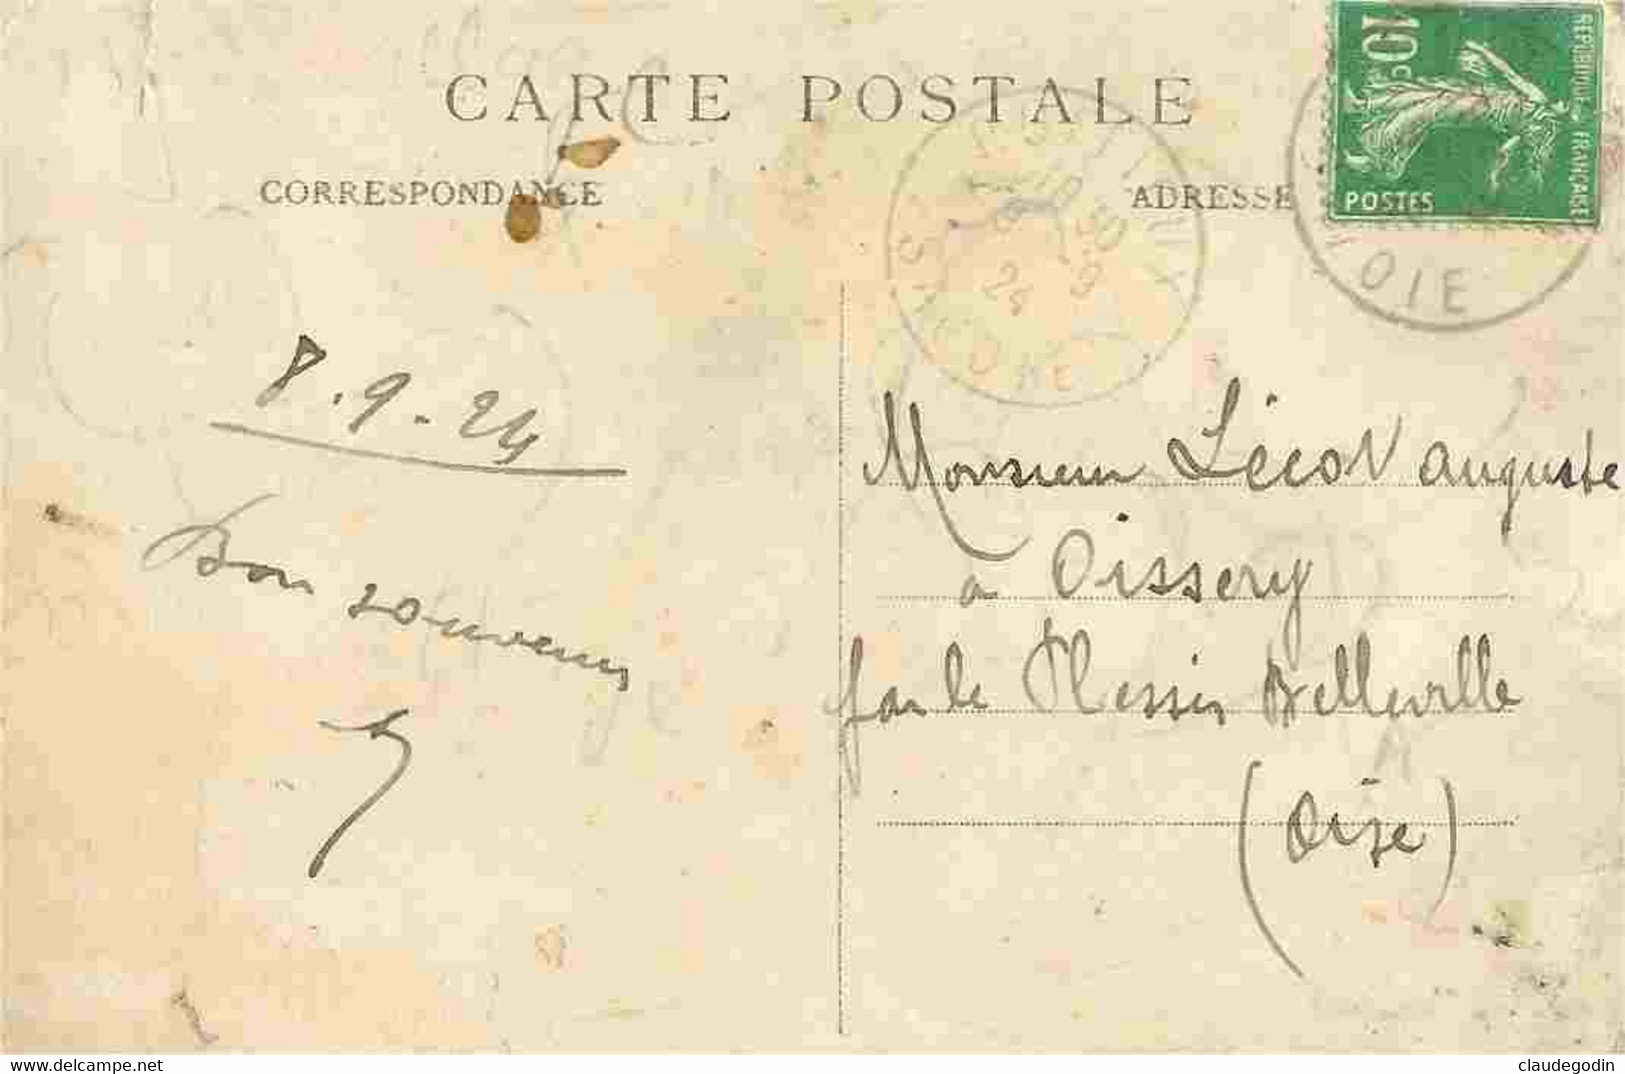 CARTE POSTALE
CORRESPONDANCE
ADRESSE
10c
REPUBLIQUE FRANÇAISE
POSTES
OIE
SAVOIE
24 9
8.9.24
Bon souvenir
Monsieur Lécot Auguste
à Oissery
par le Plessis Belleville
(Oise)
www.delcampe.net
claudegodin